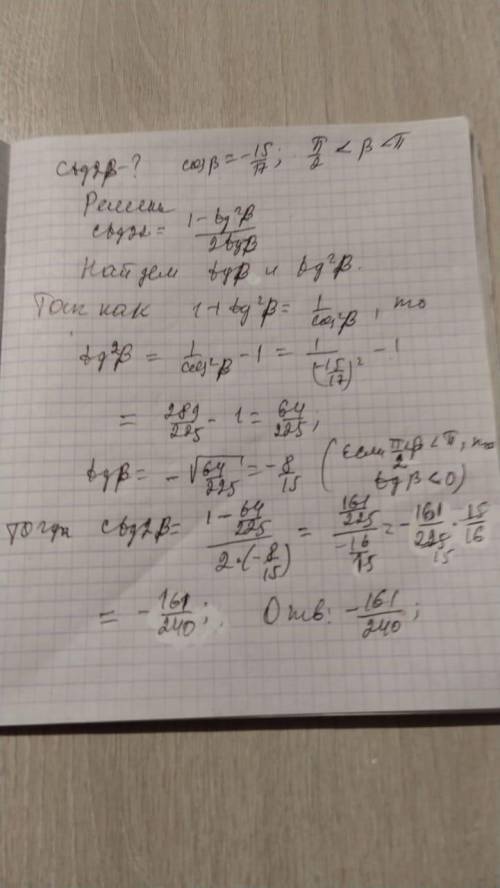 ctg2β-? cosβ = -15/17; π/2 < β < π
Решение
ctg2α = (1 - tg²β)/(2tgβ)
Найдем tgβ и tg²β.
Так как 1 + tg²β = 1/cos²β, то
tg²β = 1/cos²β - 1 = 1/(-15/17)² - 1
= 289/225 - 1 = 64/225;
tgβ = -√(64/225) = -8/15 (Если π/2<β<π, то tgβ<0)
Тогда ctg2β = (1 - 64/225)/(2·(-8/15)) = (161/225)/(-16/15) = -161/225 · 15/16
15
= -161/240; Отв: -161/240;